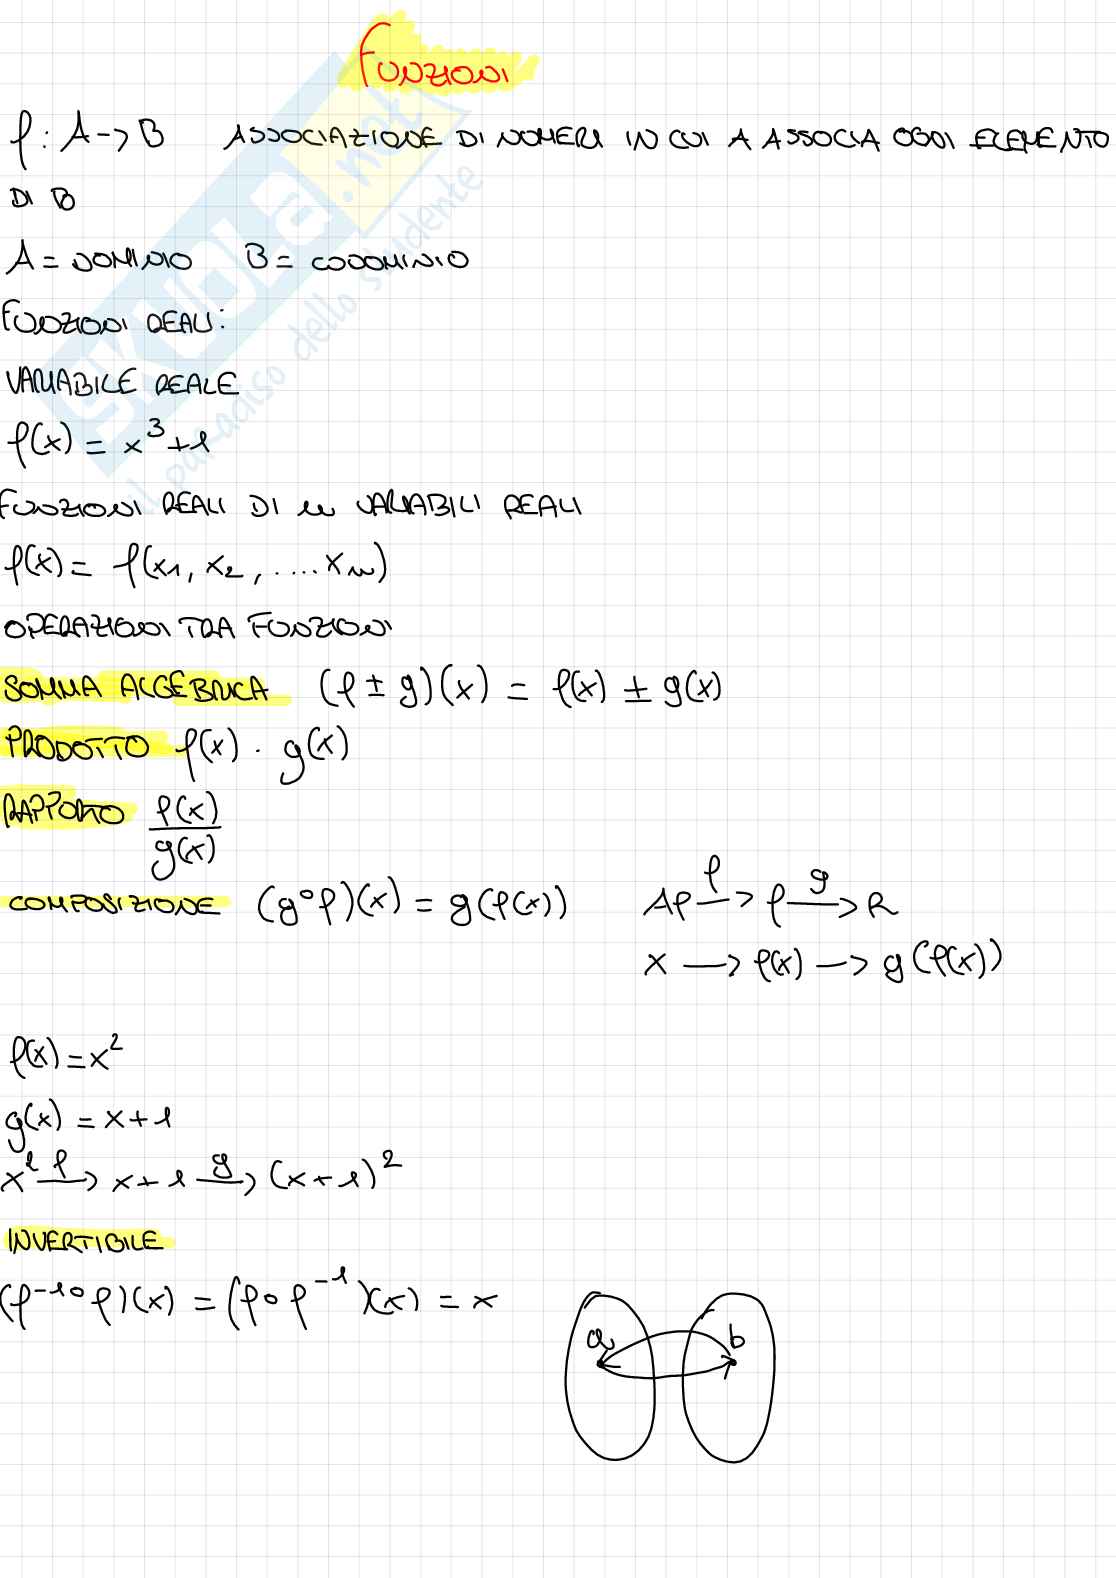 FUNZIONI
f: A → B ASSOCIAZIONE DI NUMERI IN CUI A ASSOCIA OGNI ELEMENTO
DI B
A = DOMINIO B = CODOMINIO
FUNZIONI REALI:
VARIABILE REALE
f(x) = x³+1
FUNZIONI REALI DI n VARIABILI REALI
f(x) = f(x₁, x₂, ....xₙ)
OPERAZIONI TRA FUNZIONI
SOMMA ALGEBRICA (f ± g)(x) = f(x) ± g(x)
PRODOTTO f(x) · g(x)
RAPPORTO f(x)/g(x)
COMPOSIZIONE (g∘f)(x) = g(f(x)) Af —f→ f —g→ R
x → f(x) → g(f(x))
f(x) = x²
g(x) = x+1
x² —f→ x+1 —g→ (x+1)²
INVERTIBILE
(f⁻¹∘f)(x) = (f∘f⁻¹)(x) = x
a b
SKUOLA.net
il paradiso dello studente